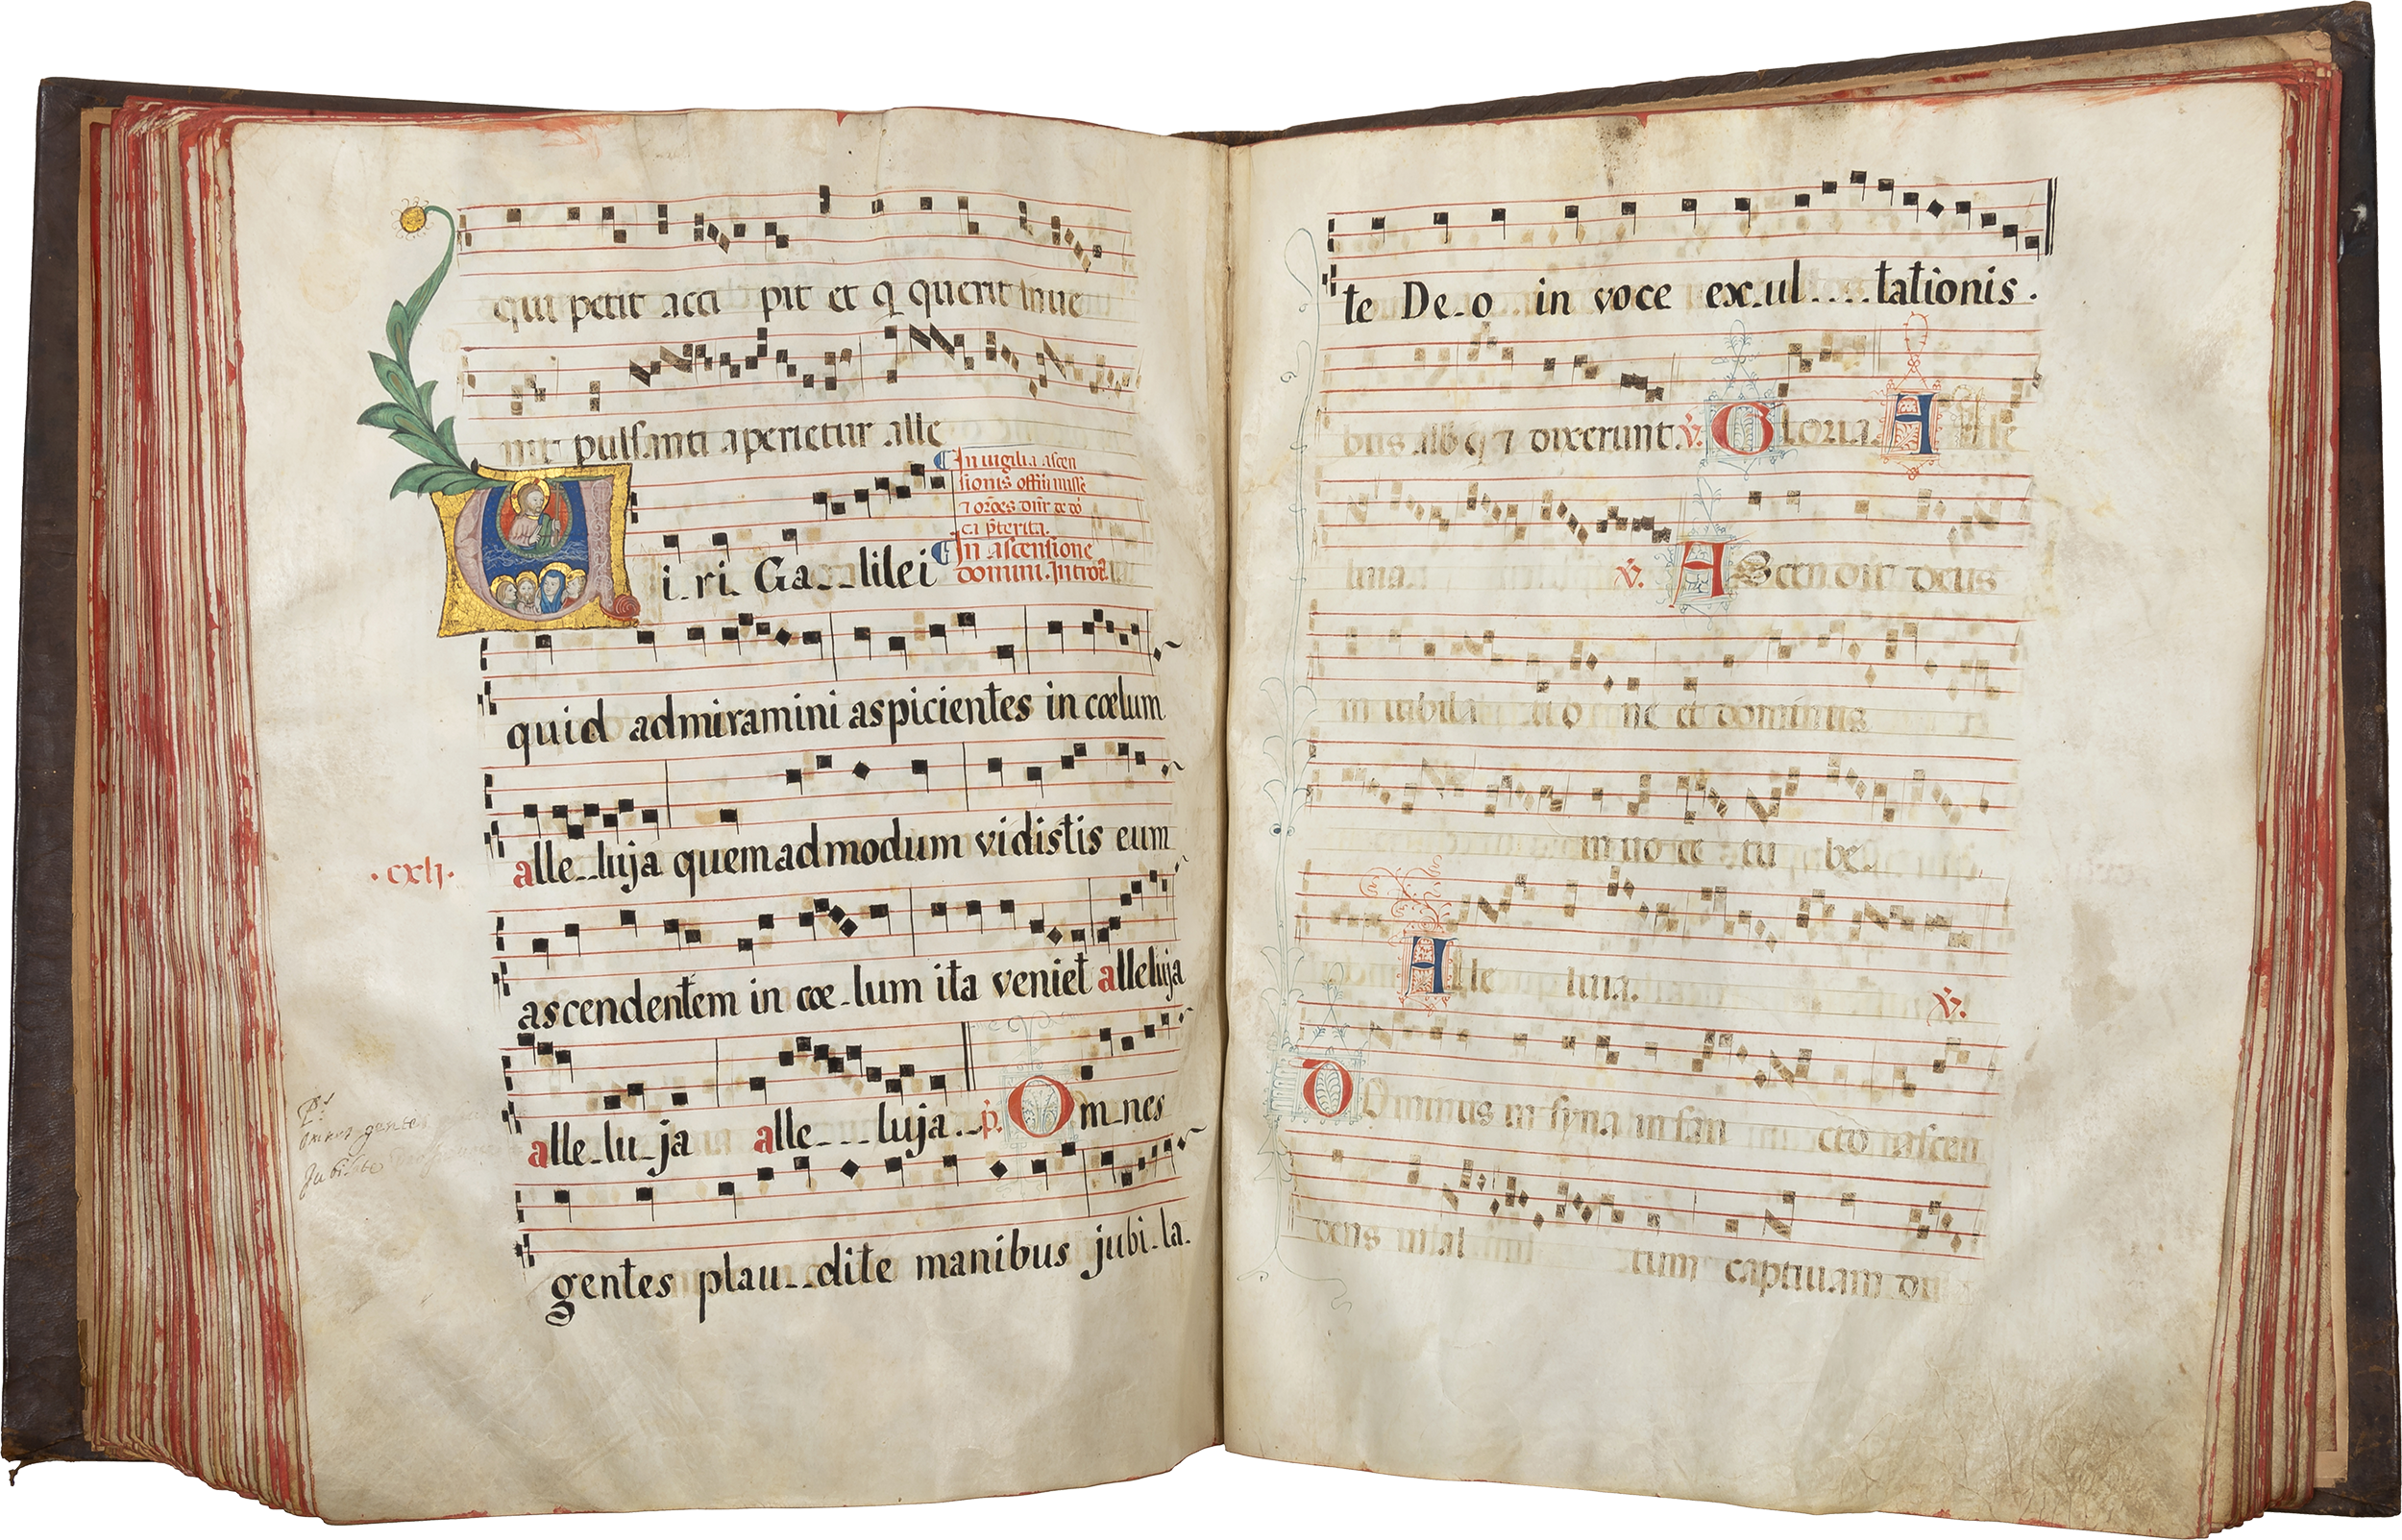 qui petit acci pit et q querit inue
nit pulsanti aperietur alle
In uigilia ascen
sionis offm misse
⁊ or̄oēs dnr̄ de dō
ca p̄terita.
In ascensione
domini. Introit.
Viri Ga__lilei
quid admiramini aspicientes in cœlum
alle__luja quemadmodum vidistis eum
.cxlj.
ascendentem in cœ_lum ita veniet alleluja
alle_lu_ja alle___luja._p. Om_nes
Ps
omnes gentes
Jubilate
gentes plau__dite manibus jubi_la.
te De_o in voce ex_ul....tationis.
bus alb q ⁊ dixerunt. V. Gloria. Alle
luia. V. AScendit deus
in iubila ti o ne et dominus
in uo ce tu be.
Alle luia. V.
DOminus in syna in san cto ascen
dens in al tum captiuam du